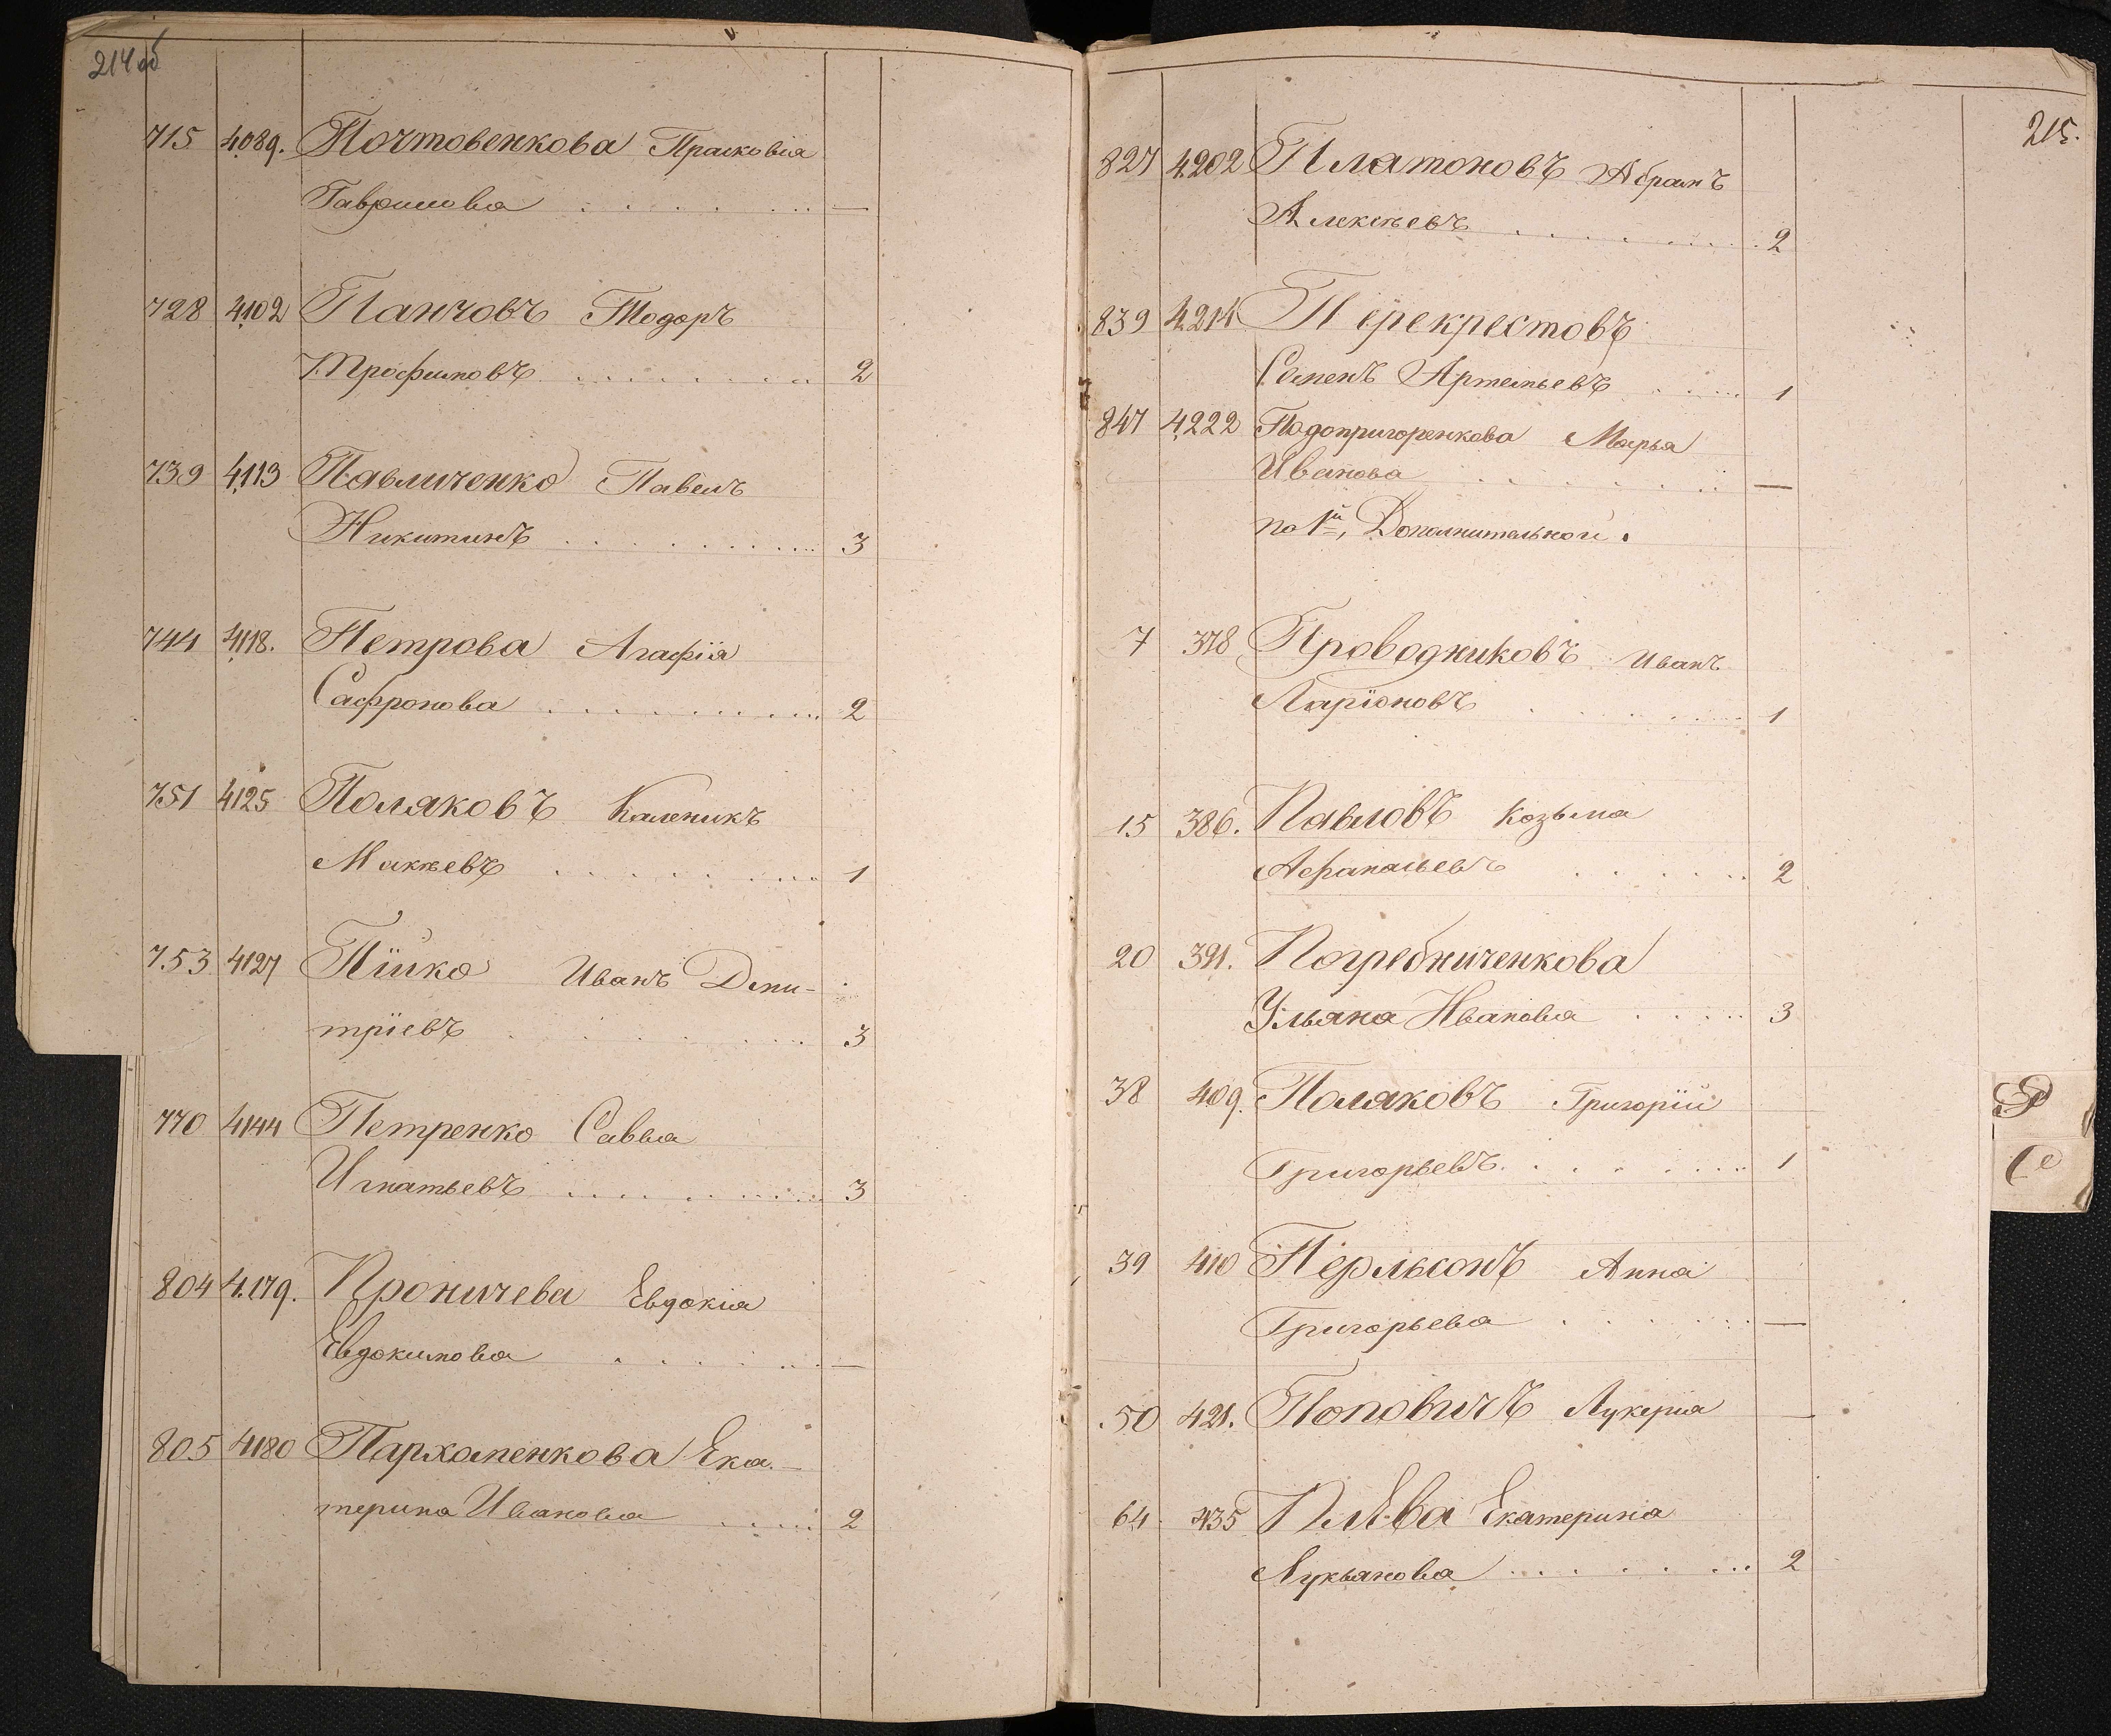 214 об
715 4089. Почтовенкова Прасковiя
Гаврилова . . . . . . . —
728 4102 Панчовъ Тодоръ
Трофимовъ . . . . . . . 2
739 4113 Павличенко Павелъ
Никитинъ . . . . . . . 3
744 4118. Петрова Агафiя
Сафронова . . . . . . . 2
751 4125 Поляковъ Каленикъ
Макѣевъ . . . . . . . 1
753 4127 Пiйко Иванъ Дми-
трiевъ . . . . . . . 3
770 4144 Петренко Савва
Игнатьевъ . . . . . . . 3
804 4179. Проничева Евдокiя
Евдокимова . . . . . —
805 4180 Пархоменкова Ека-
терина Иванова . . . . . 2
215.
827 4202 Платоновъ Абрамъ
Алексѣевъ . . . . . . . 2
839 4214 Перекрестовъ
Семенъ Артемьевъ . . . . . 1
847 4222 Подопригоренкова Марья
Иванова . . . . . . . —
по 1й, Дополнительной.
7 378 Проводниковъ Иванъ
Ларiоновъ . . . . . . . 1
15 386. Павловъ Козьма
Афанасьевъ . . . . . . 2
20 391. Погребниченкова
Ульяна Иванова . . . . . 3
38 409. Поляковъ Григорiй
Григорьевъ . . . . . . . 1
39 410 Перльсонъ Анна
Григорьева . . . . . . —
50 421. Поповичъ Лукерiя —
64 435 Плѣва Екатерина
Лукьянова . . . . . . . 2